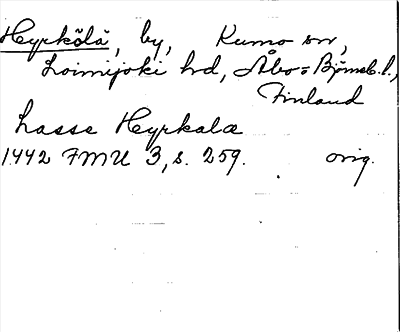 Heyrkölä, by, Kumo sn,
Loimijoki hd, Åbo=Björneb. l.,
Finland
Lasse Heyrkalæ
1442 FMU 3, s. 259. orig.